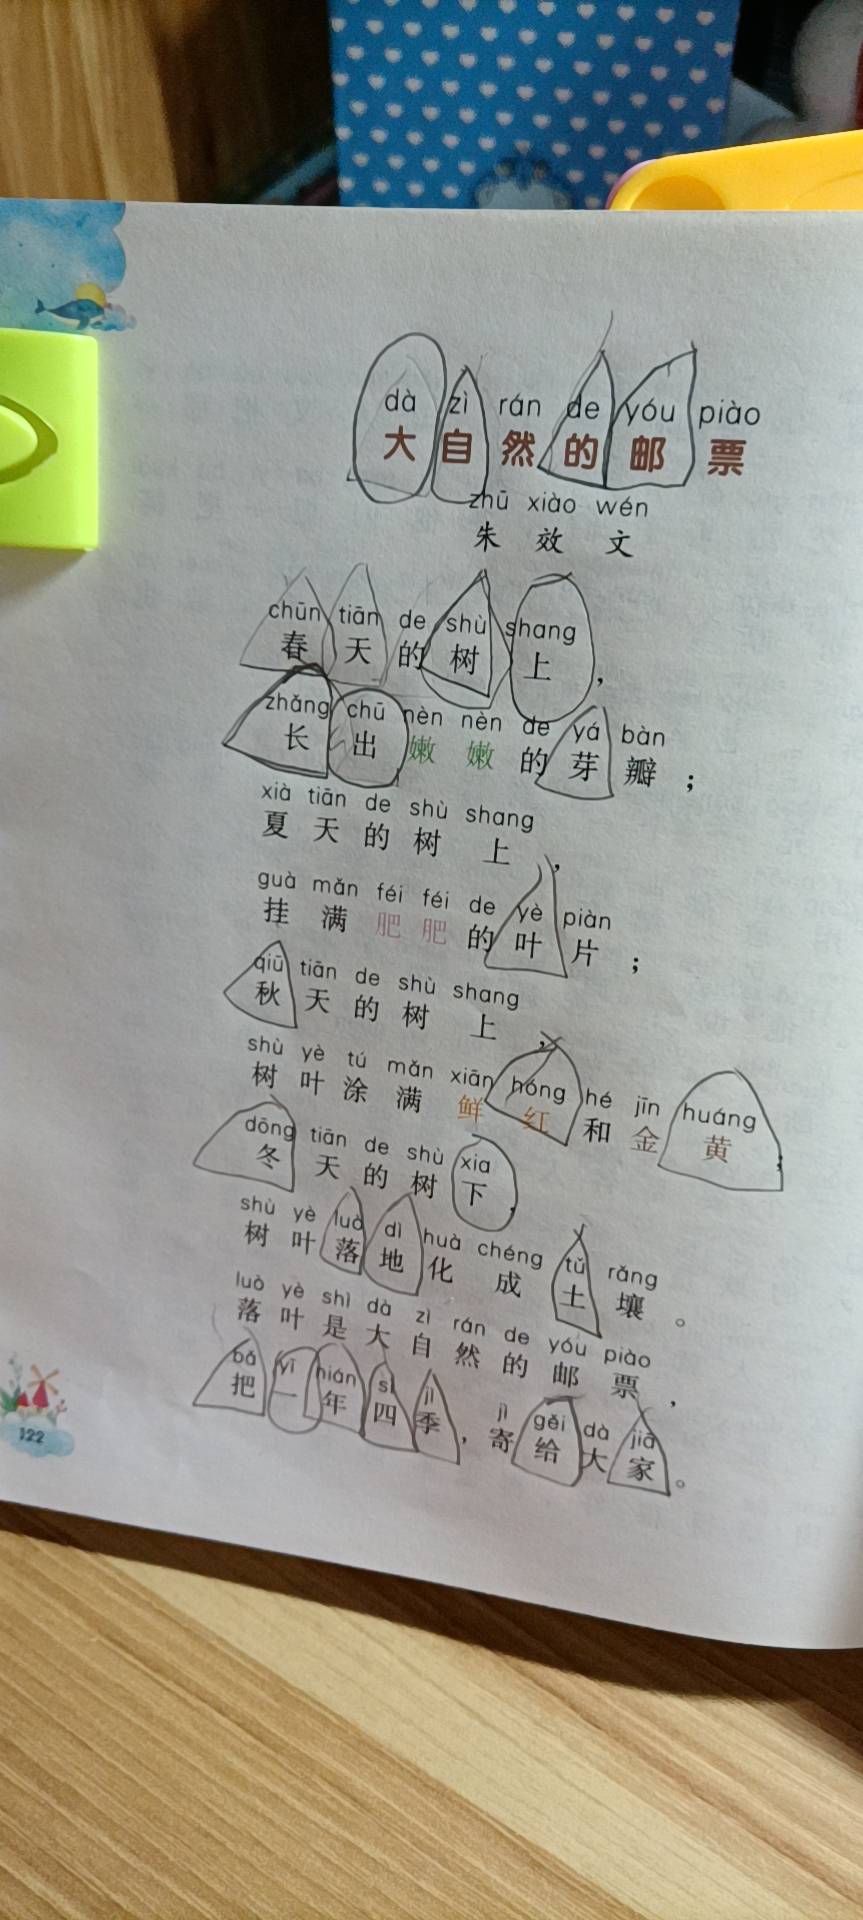 dà zì rán de yóu piào
大自然的邮票
zhū xiào wén
朱效文
chūn tiān de shù shang
春天的树上，
zhǎng chū nèn nèn de yá bàn
长出嫩嫩的芽瓣；
xià tiān de shù shang
夏天的树上，
guà mǎn féi féi de yè piàn
挂满肥肥的叶片；
qiū tiān de shù shang
秋天的树上，
shù yè tú mǎn xiān hóng hé jīn huáng
树叶涂满鲜红和金黄；
dōng tiān de shù xia
冬天的树下，
shù yè luò dì huà chéng tǔ rǎng
树叶落地化成土壤。
luò yè shì dà zì rán de yóu piào
落叶是大自然的邮票，
bǎ yī nián sì jì jì gěi dà jiā
把一年四季，寄给大家。
122